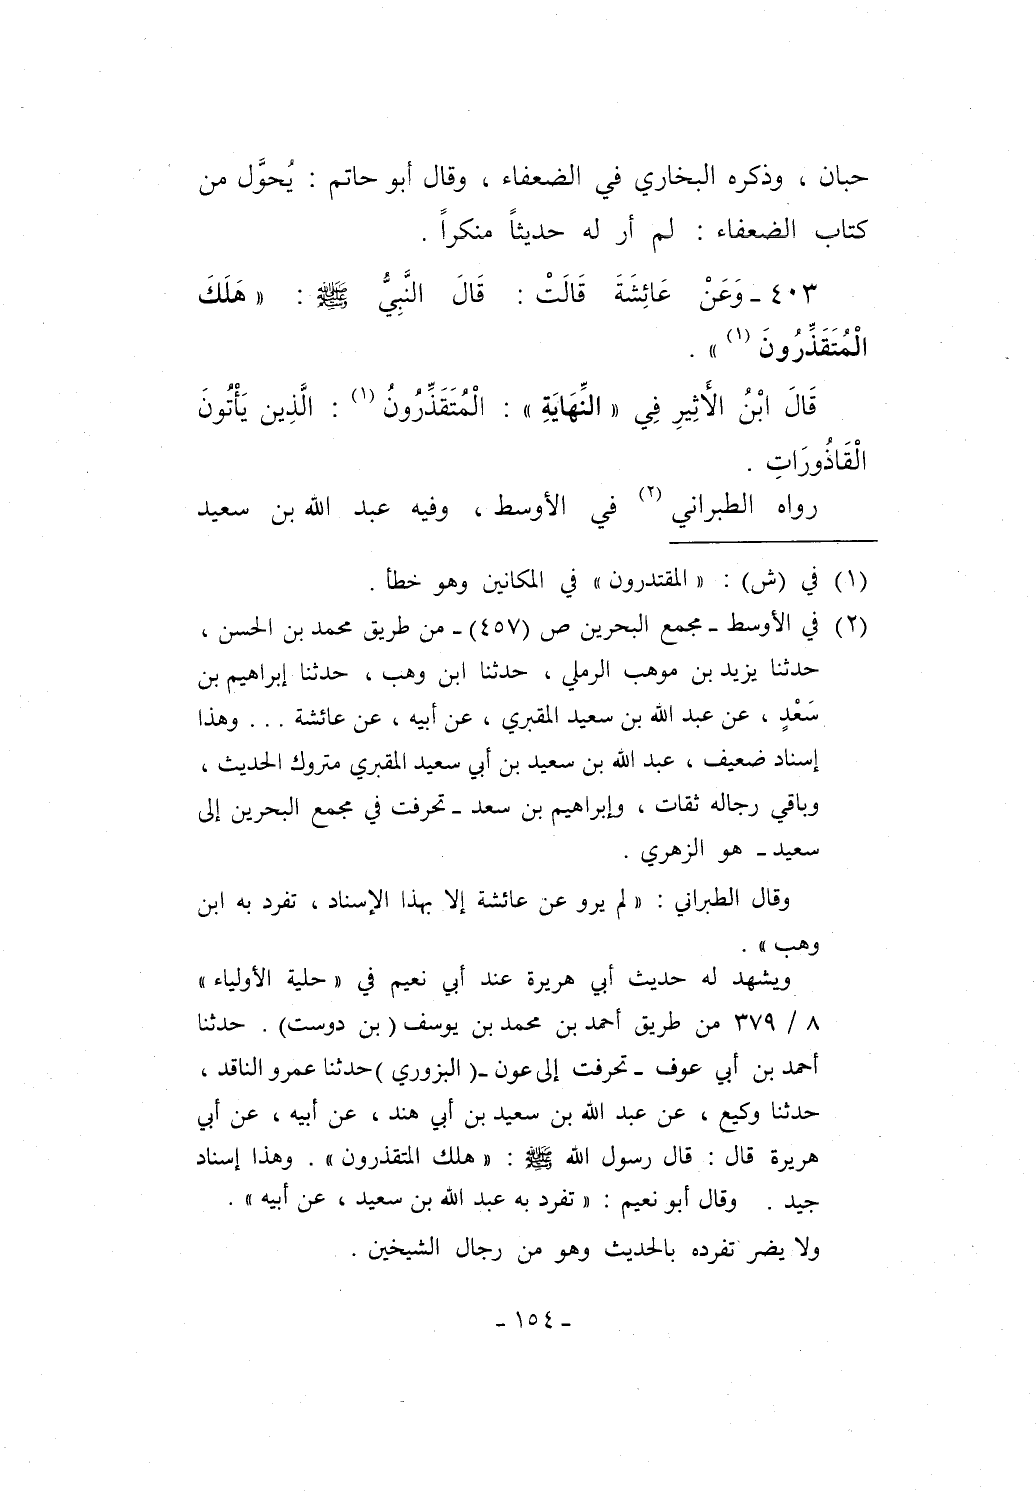 حبان ، وذكره البخاري في الضعفاء ، وقال أبو حاتم : يُحوَّل من
كتاب الضعفاء : لم أر له حديثاً منكراً .
٤٠٣ ـ وَعَنْ عَائِشَةَ قَالَتْ : قَالَ النَّبِيُّ ﷺ : « هَلَكَ
الْمُتَقَذِّرُونَ (١) » .
قَالَ ابْنُ الأَثِيرِ فِي « النِّهَايَةِ » : الْمُتَقَذِّرُونُ (١) : الَّذِين يَأْتُونَ
الْقَاذُورَاتِ .
رواه الطبراني (٢) في الأوسط ، وفيه عبد الله بن سعيد
(١) في (ش) : « المقتدرون » في المكانين وهو خطأ .
(٢) في الأوسط ـ مجمع البحرين ص (٤٥٧) ـ من طريق محمد بن الحسن ،
حدثنا يزيد بن موهب الرملي ، حدثنا ابن وهب ، حدثنا إبراهيم بن
سَعْدٍ ، عن عبد الله بن سعيد المقبري ، عن أبيه ، عن عائشة . . . وهذا
إسناد ضعيف ، عبد الله بن سعيد بن أبي سعيد المقبري متروك الحديث ،
وباقي رجاله ثقات ، وإبراهيم بن سعد ـ تحرفت في مجمع البحرين إلى
سعيد ـ هو الزهري .
وقال الطبراني : « لم يرو عن عائشة إلا بهذا الإسناد ، تفرد به ابن
وهب » .
ويشهد له حديث أبي هريرة عند أبي نعيم في « حلية الأولياء »
٨ / ٣٧٩ من طريق أحمد بن محمد بن يوسف ( بن دوست) . حدثنا
أحمد بن أبي عوف ـ تحرفت إلى عون ـ( البزوري )حدثنا عمرو الناقد ،
حدثنا وكيع ، عن عبد الله بن سعيد بن أبي هند ، عن أبيه ، عن أبي
هريرة قال : قال رسول الله ﷺ : « هلك المتقذرون » . وهذا إسناد
جيد . وقال أبو نعيم : « تفرد به عبد الله بن سعيد ، عن أبيه » .
ولا يضر تفرده بالحديث وهو من رجال الشيخين .
ـ ١٥٤ ـ